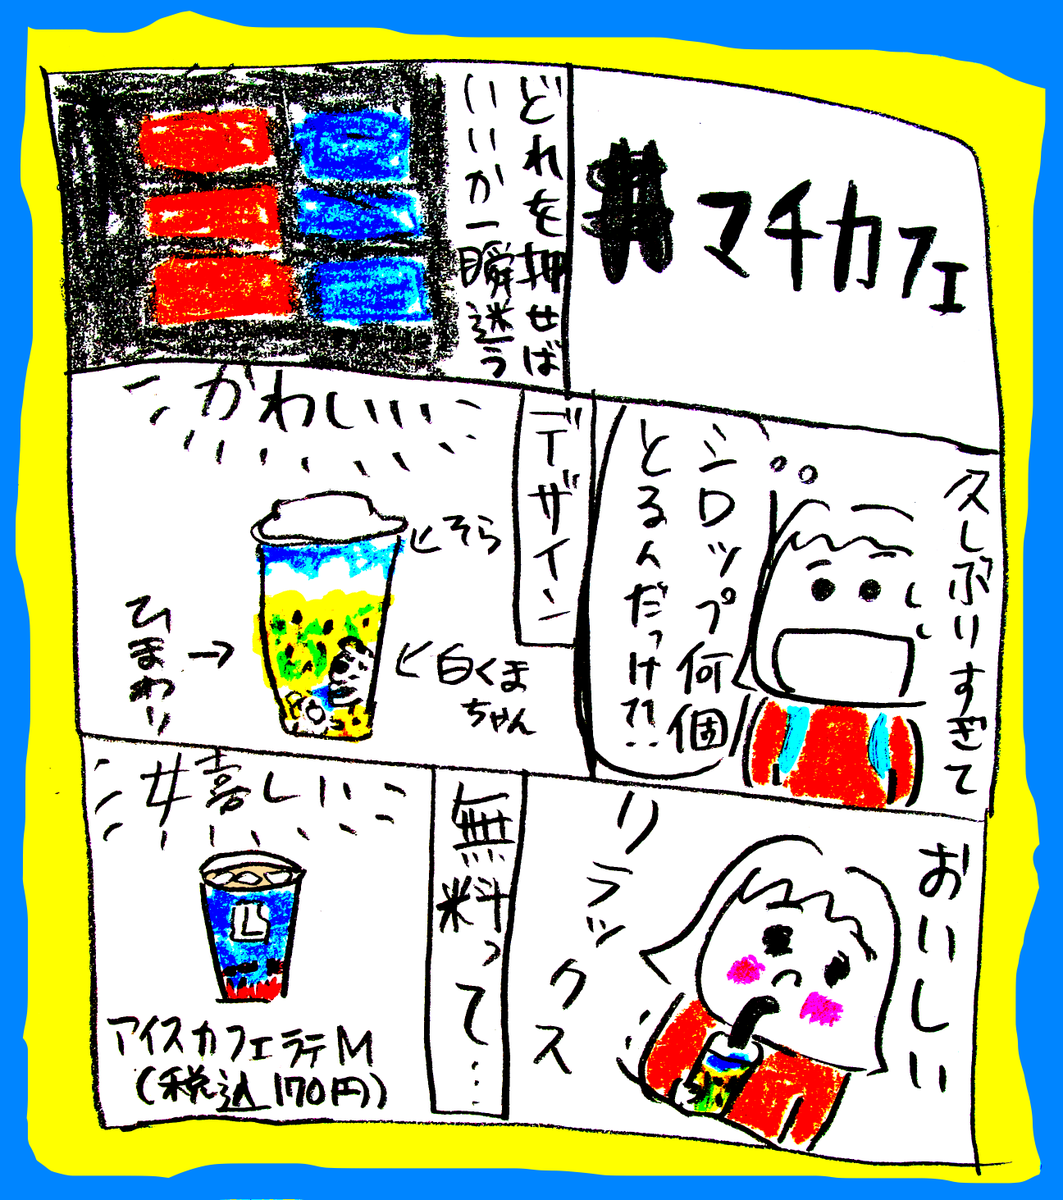 #マチカフェ
どれを押せば
いいか一瞬迷う
久しぶりすぎて
シロップ何個
とるんだっけ?!
デザイン
かわいい
そら
白くま
ちゃん
ひまわり
おいしい
リラックス
無料って…
嬉しい
L
アイスカフェラテM
(税込170円)